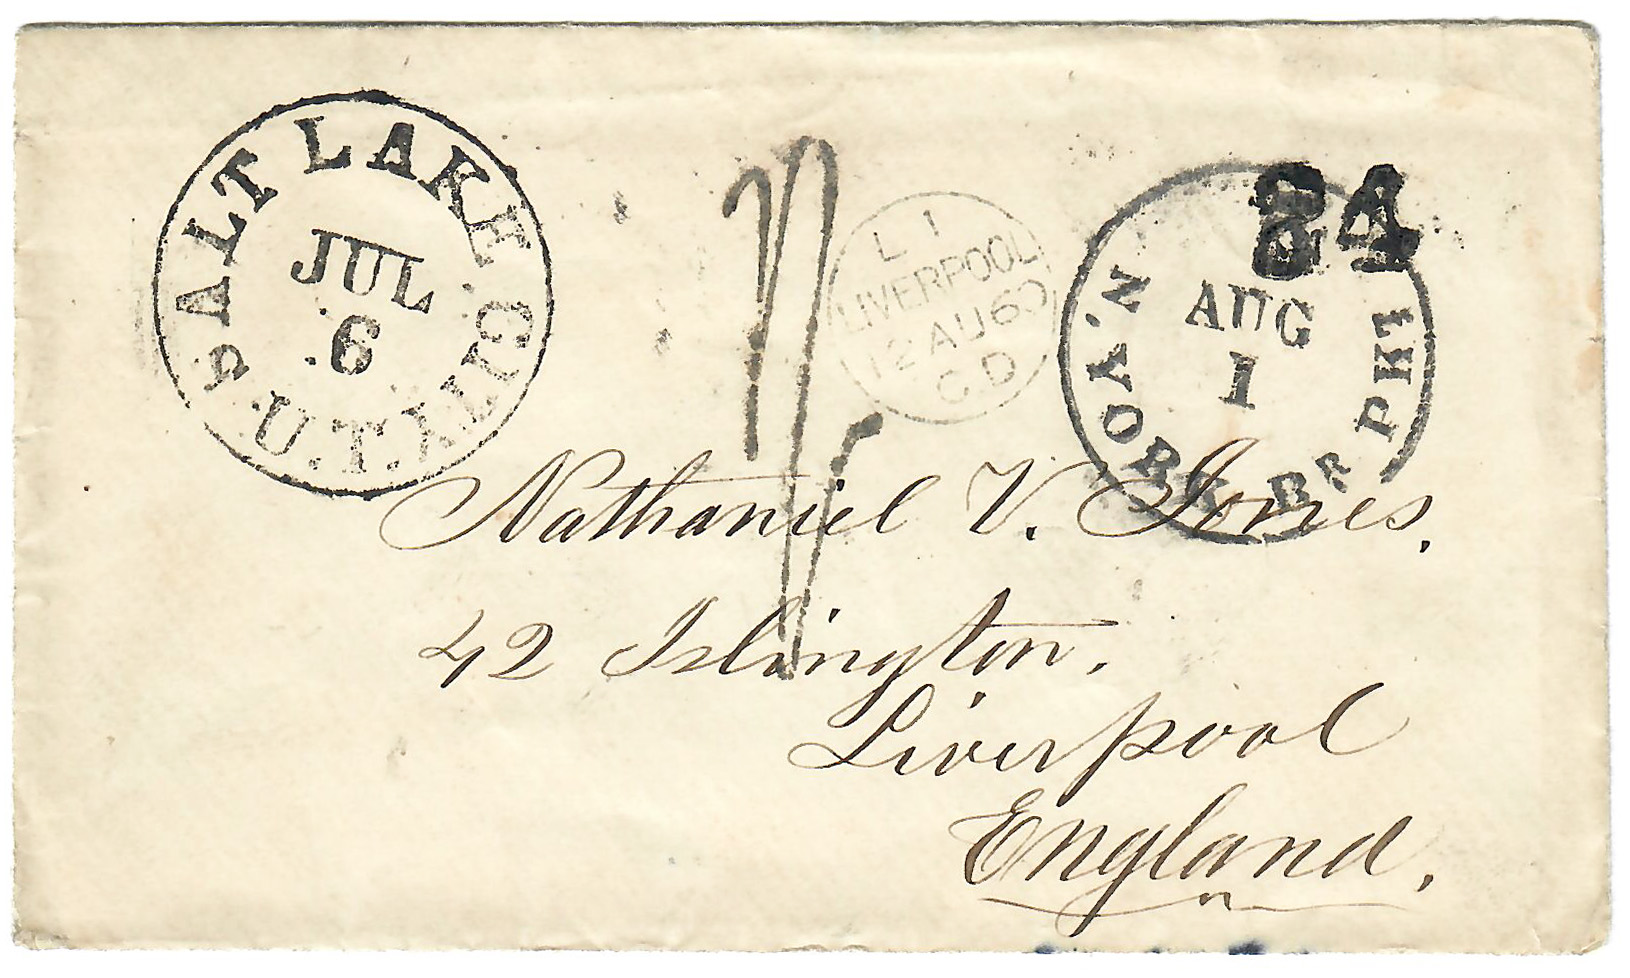 SALT LAKE CITY. U.T.
JUL
6
L I
LIVERPOOL
12 AU 60
C D
84
N. YORK BR PKT
AUG
1
Nathaniel V. Jones.
42 Islington.
Liverpool
England.